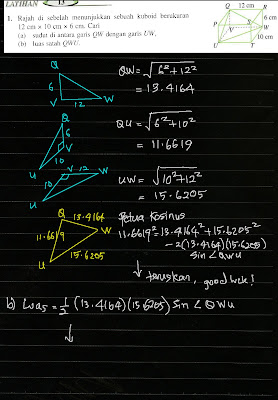 LATIHAN
1. Rajah di sebelah menunjukkan sebuah kuboid berukuran
12 cm × 10 cm × 6 cm. Cari
(a) sudut di antara garis QW dengan garis UW,
(b) luas satah QWU.
Q 12 cm R
P S 6 cm
V W
10 cm
U T
Q
6
V 12 W
QW = √6² + 12²
= 13.4164
Q
6
V
10
U
QU = √6² + 10²
= 11.6619
V 12 W
10
U
UW = √10² + 12²
= 15.6205
Q 13.4164
11.6619 W
U 15.6205
Petua Kosinus
11.6619² = 13.4164² + 15.6205²
-2(13.4164)(15.6205)
Sin ∠QWU
↓ teruskan, good luck!
b) Luas = 1/2 (13.4164)(15.6205) Sin ∠QWU
↓